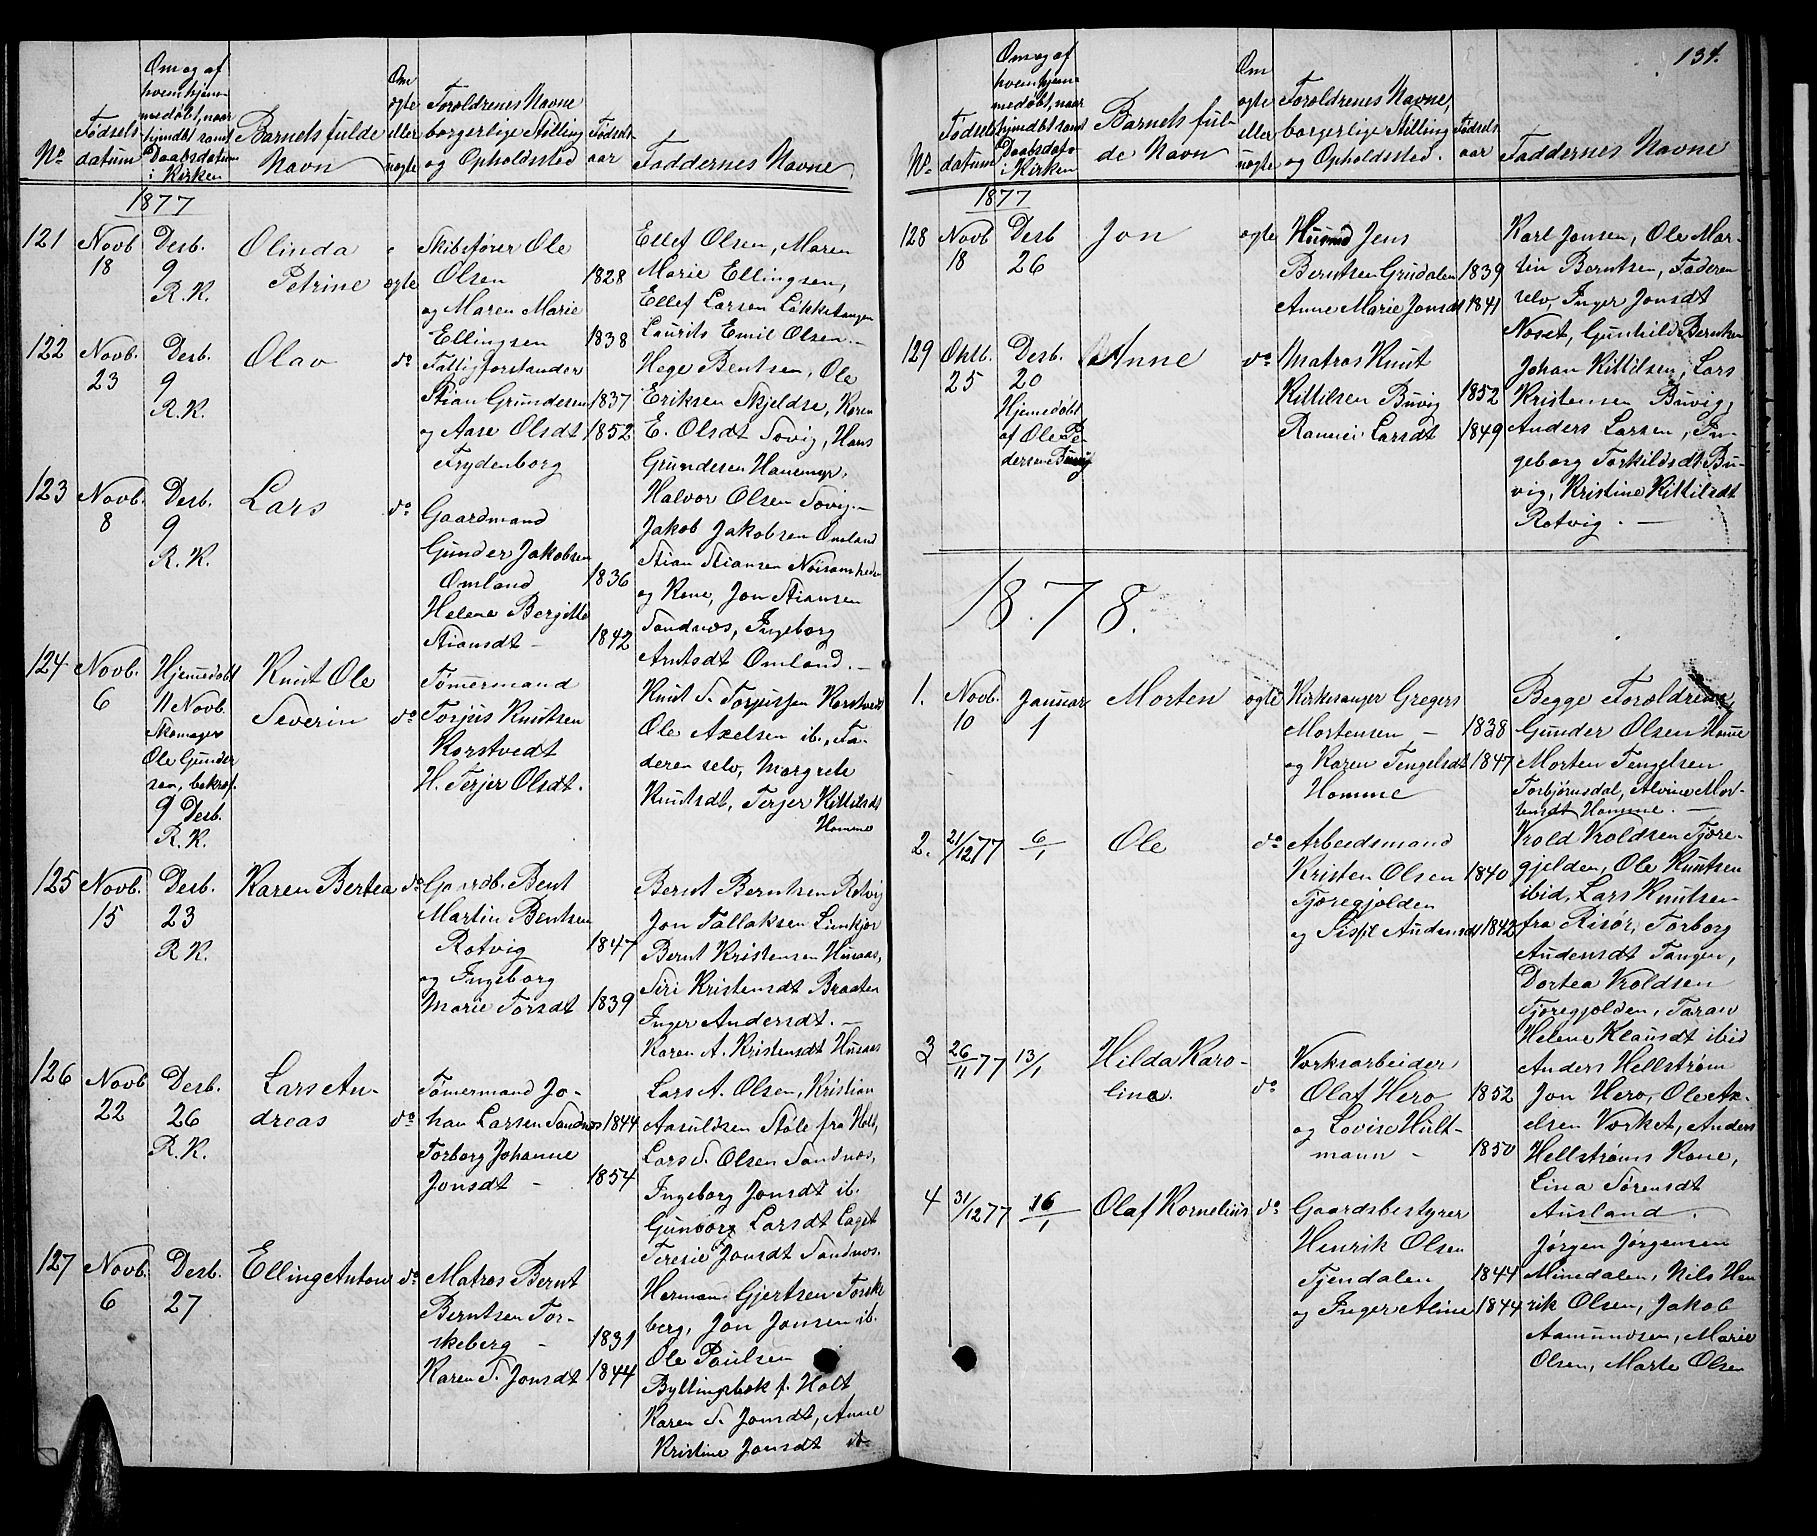 No
Fødsels
datum
Om og af
hvem hjem-
medøbt, naar
hjmdbt samt
Daabsdatum
i Kirken
Barnets fulde
Navn
Om
ægte
eller
uægte
Foroldrenes Navne
borgerlige Stilling
og Opholdssted
Fødsels
aar
Faddernes Navne
1877
121
Novb
18
Desb.
9
R.K.
Olinda
Petrine
ægte
Skibsfører Ole
Olsen
1828
og Maren Marie
Ellingsen
1838
Ellef Olsen, Maren
Marie Ellingsen,
Ellef Larsen Løkketangen
Laurits Emil Olsen. —
122
Novb.
23
Desb.
9
R.K.
Olav
do
Fattigforstander
Stian Gundersen
1837
og Aase Olsdt
1852
Frydenborg
Hege Bentsen, Ole
Eriksen Skjeldsø, Karen
E. Olsdt Sovig, Hans
Gundersen Hanemyr,
Halvor Olsen Sovig. —
123
Novb.
8
Desb.
9
R.K.
Lars
do
Gaardmand
Gunder Jakobsen
Omland
1836
Helene Bergitte
Stiansdt —
1842
Jakob Jakobsen Omland
Stian Stiansen
og Kone, Jon Stiansen
Sandnæs, Ingeborg
Arntsdt Omland. —
124
Novb.
6
Hjemmedøbt
11 Novb.
Skomager
Ole Gunder
sen, bekræf.
9 Desb.
R.K.
Knut Ole
Severin
do
Tømmermand
Torjus Knutsen
Karstvedt
H. Terjer Olsdt.
Knut S. Torjussen Karstvedt
Ole Axelsen ib., Fa-
deren selv, Margrete
Knutsdt, Terjer Kittilsdt
Homme
125
Novb.
15
Desb.
23
R.K.
Karen Bertea
do
Gaardb. Bent
Martin Bentsen
Rotvig
1847
og Ingeborg
Marie Torsdt
1839
Bernt Berntsen Rotvig
Jon Tallaksen Lunkjær
Bernt Kristensen Husaas,
Siri Kristensdt Braaten
Inger Andersdt. —
Karen A. Kristensdt Husaas
126
Novb
22
Desb.
26
R.K.
Lars An-
dreas
do
Tømmermand Jo-
han Larsen Sandnæs
1844
Torborg Johanne
Jonsdt —
1854
Lars A. Olsen, Kristian
Aasuldsen Støle fra Holt,
Lars S. Olsen Sandnæs,
Ingeborg Jonsdt ib.
Gunvor Larsdt Laget
Teresie Jonsdt Sandnæs.
127
Novb.
6
Desb.
27
Elling Anton
do
Matros Bernt
Berntsen Tor-
skeberg —
1831
Karen S. Jonsdt
1844
Herman Gjertsen Torske
berg, Jon Jonsen ib.
Ole Paulsen
Byllingsbæk f. Holt
Karen S. Jonsdt, Anne
Kristine Jonsdt ib
134.
No
Fødsels
datum
Om og af
hvem hjem-
medøbt, naar
hjmdbt samt
Daabsdato
i Kirken
Barnets ful-
de Navn
Om
ægte
eller
uægte
Foroldrenes Navne,
borgerlige Stilling
og Opholdssted.
Fødsels
aar
Faddernes Navne
1877
128
Novb
18
Desb
26
Jon
ægte
Husmd Jens
Berntsen Grudalen
1839
Anne Marie Jonsdt
1841
Karl Jonsen, Ole Mar-
tin Berntsen, Faderen
selv, Inger Jonsdt
Næset, Gunhild Berntsen
129
Oktb.
25
Desb.
20
Hjemmedøbt
af Ole Pe-
dersen Buvig
Anne
do
Matros Knut
Kittilsen Buvig
1852
Rannei Larsdt
1849
Johan Kittilsen, Lars
Kristensen Buvig,
Anders Larsen, In-
geborg Torkildsdt Bu-
vig, Kristine Kittilsdt
Rotvig. —
1878.
1.
Novb.
10
Januar
1
Morten
ægte
Kirkesanger Gregers
Mortensen —
1838
og Karen Tengelsdt
1847
Homme
Begge Foroldrene,
Gunder Olsen Homme
Morten Tengelsen
Torbjørnsdal, Alvine Mor-
tensdt Homme. —
2.
21/12 77
6/1
Ole
do
Arbeidsmand
Kristen Olsen
1840
Fjæregjølden
og Sissel Andersdt
1842
Vrold Vroldsen Fjære-
gjelden, Ole Knutsen
ibid, Lars Knutsen
fra Risør, Torborg
Andersdt Tangen,
Dortea Vroldsen
Fjæregjolden, Taran
Helene Klausdt ibid
3
26/11 77
13/1
Hilda Karo-
lina.
do
Værksarbeider
Olaf Hero
1852
og Lovise Hult-
mann —
1850
Anders Hellstrøm
Jon Hero, Ole Ax-
elsen Værket, Anders
Hellstrøms Kone,
Lina Sørensdt
Ausland.
4
31/12 77
16/1
Olaf Kornelius
do
Gaardsbestyrer
Henrik Olsen
Tjendalen
1844
og Inger Aline
1844
Jørgen Jørgensen
Minedalen, Nils Hen
rik Olsen, Jakob
Aamundsen, Marie
Olsen, Marte Olsen